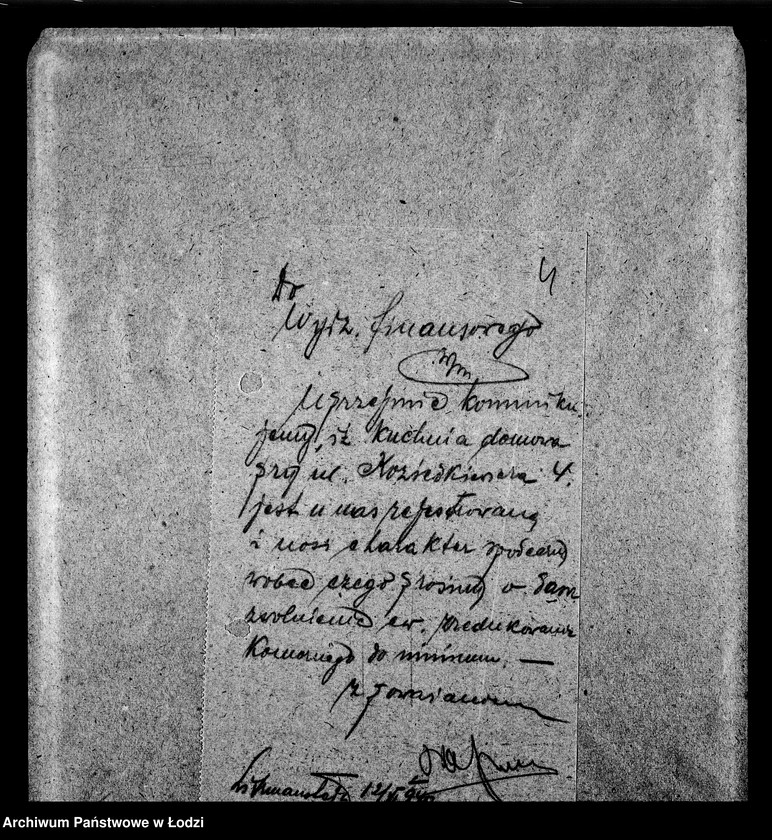 4
Do
Wydz. finansowego
Uprzejmie komuniku-
jemy, iż kuchnia domowa
przy ul. 4.
jest u nas rejestrowaną
i nosi charakter społeczny
wobec czego prosimy o
zwolnienie ew. zredukowanie
Komornego do minimum. —
z poważaniem
Litzmannstadt 12/V
Archiwum Państwowe w Łodzi